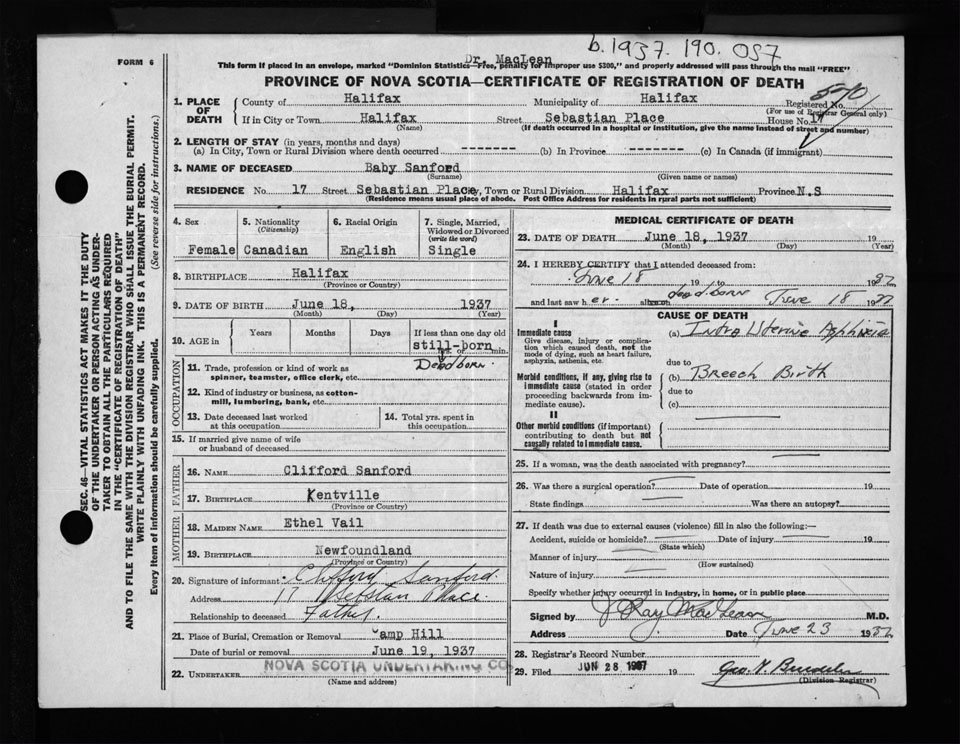 b.1937. 190. 057
FORM 6
Dr. MacLean
This form if placed in an envelope, marked "Dominion Statistics—Free, penalty for improper use $300," and properly addressed will pass through the mail "FREE"
PROVINCE OF NOVA SCOTIA—CERTIFICATE OF REGISTRATION OF DEATH
1. PLACE OF DEATH
County of Halifax Municipality of Halifax Registered No.
(For use of Registrar General only)
If in City or Town Halifax Street Sebastian Place House No. 17
(Name) (If death occurred in a hospital or institution, give the name instead of street and number)
2. LENGTH OF STAY (in years, months and days)
(a) In City, Town or Rural Division where death occurred -------- (b) In Province -------- (c) In Canada (if immigrant)
3. NAME OF DECEASED Baby Sanford
(Surname) (Given name or names)
RESIDENCE No. 17 Street Sebastian Place, Town or Rural Division Halifax Province N.S
(Residence means usual place of abode. Post Office Address for residents in rural parts not sufficient)
4. Sex Female
5. Nationality (Citizenship) Canadian
6. Racial Origin English
7. Single, Married, Widowed or Divorced (write the word) Single
8. BIRTHPLACE Halifax
(Province or Country)
9. DATE OF BIRTH June 18, 1937
(Month) (Day) (Year)
10. AGE in Years Months Days If less than one day old
still-born
hr. or min.
Deadborn
OCCUPATION
11. Trade, profession or kind of work as spinner, teamster, office clerk, etc.
12. Kind of industry or business, as cotton-mill, lumbering, bank, etc.
13. Date deceased last worked at this occupation
14. Total yrs. spent in this occupation
15. If married give name of wife or husband of deceased
FATHER
16. NAME Clifford Sanford
17. BIRTHPLACE Kentville
(Province or Country)
MOTHER
18. MAIDEN NAME Ethel Vail
19. BIRTHPLACE Newfoundland
(Province or Country)
20. Signature of informant Clifford Sanford.
Address 17 Place
Relationship to deceased Father.
21. Place of Burial, Cremation or Removal Camp Hill
Date of burial or removal June 19, 1937
22. UNDERTAKER NOVA SCOTIA UNDERTAKING CO
(Name and address)
MEDICAL CERTIFICATE OF DEATH
23. DATE OF DEATH June 18, 1937 19
(Month) (Day) (Year)
24. I HEREBY CERTIFY that I attended deceased from:
June 18 19 to 1937
and last saw her alive on deadborn June 18 1937
CAUSE OF DEATH
I
Immediate cause
Give disease, injury or complication which caused death, not the mode of dying, such as heart failure, asphyxia, asthenia, etc.
(a) Intra Uterine Asphixia
due to
Morbid conditions, if any, giving rise to immediate cause (stated in order proceeding backwards from immediate cause).
(b) Breech Birth
due to
(c)
II
Other morbid conditions (if important) contributing to death but not causally related to immediate cause.
25. If a woman, was the death associated with pregnancy?
26. Was there a surgical operation? Date of operation 19
State findings Was there an autopsy?
27. If death was due to external causes (violence) fill in also the following:—
Accident, suicide or homicide? Date of injury 19
(State which)
Manner of injury
(How sustained)
Nature of injury
Specify whether injury occurred in industry, in home, or in public place
Signed by J Ray MacLean M.D.
Address Date June 23 1937
28. Registrar's Record Number
29. Filed JUN 28 1937 19 Geo. N.
(Division Registrar)
SEC. 46—VITAL STATISTICS ACT MAKES IT THE DUTY
OF THE UNDERTAKER OR PERSON ACTING AS UNDER-
TAKER TO OBTAIN ALL THE PARTICULARS REQUIRED
IN THE "CERTIFICATE OF REGISTRATION OF DEATH"
AND TO FILE THE SAME WITH THE DIVISION REGISTRAR WHO SHALL ISSUE THE BURIAL PERMIT.
WRITE PLAINLY WITH UNFADING INK. THIS IS A PERMANENT RECORD.
Every item of Information should be carefully supplied. (See reverse side for instructions.)